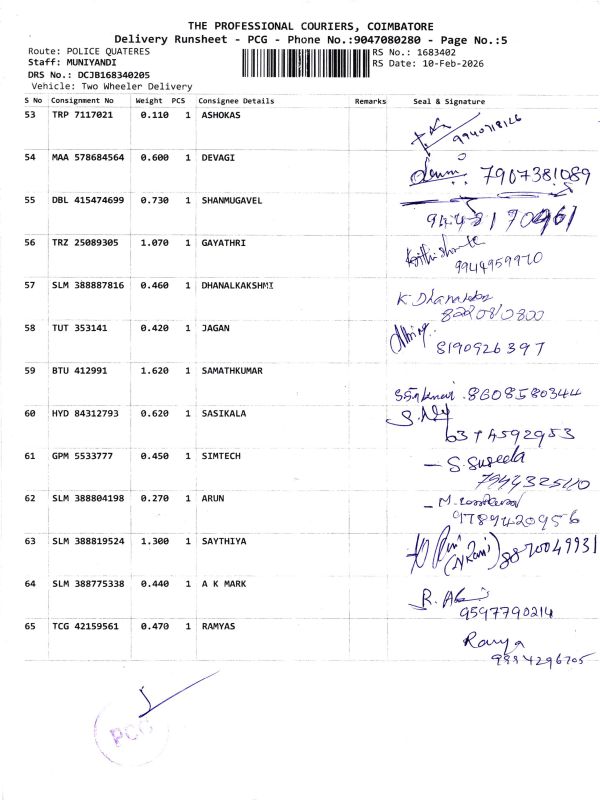 THE PROFESSIONAL COURIERS, COIMBATORE
Delivery Runsheet - PCG - Phone No.:9047080280 - Page No.:5
Route: POLICE QUATERES RS No.: 1683402
Staff: MUNIYANDI RS Date: 10-Feb-2026
DRS No.: DCJB168340205
Vehicle: Two Wheeler Delivery
S No Consignment No Weight PCS Consignee Details Remarks Seal & Signature
53 TRP 7117021 0.110 1 ASHOKAS
9940718126
54 MAA 578684564 0.600 1 DEVAGI
7907381089
55 DBL 415474699 0.730 1 SHANMUGAVEL
56 TRZ 25089305 1.070 1 GAYATHRI
9944959970
57 SLM 388887816 0.460 1 DHANALKAKSHMI
K. Dhanalakshmi
8220810800
58 TUT 353141 0.420 1 JAGAN
8190926397
59 BTU 412991 1.620 1 SAMATHKUMAR
8608580344
60 HYD 84312793 0.620 1 SASIKALA
6374592953
61 GPM 5533777 0.450 1 SIMTECH
S. Suseela
62 SLM 388804198 0.270 1 ARUN
9789420956
63 SLM 388819524 1.300 1 SAYTHIYA
(N Rani) 8870049931
64 SLM 388775338 0.440 1 A K MARK
9597790214
65 TCG 42159561 0.470 1 RAMYAS
Ramya
9994296705
PCG